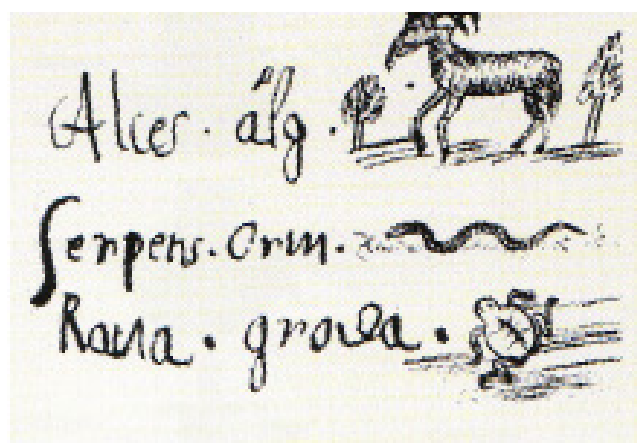 Alces · älg ·
Serpens · Orm ·
Rana · groda ·